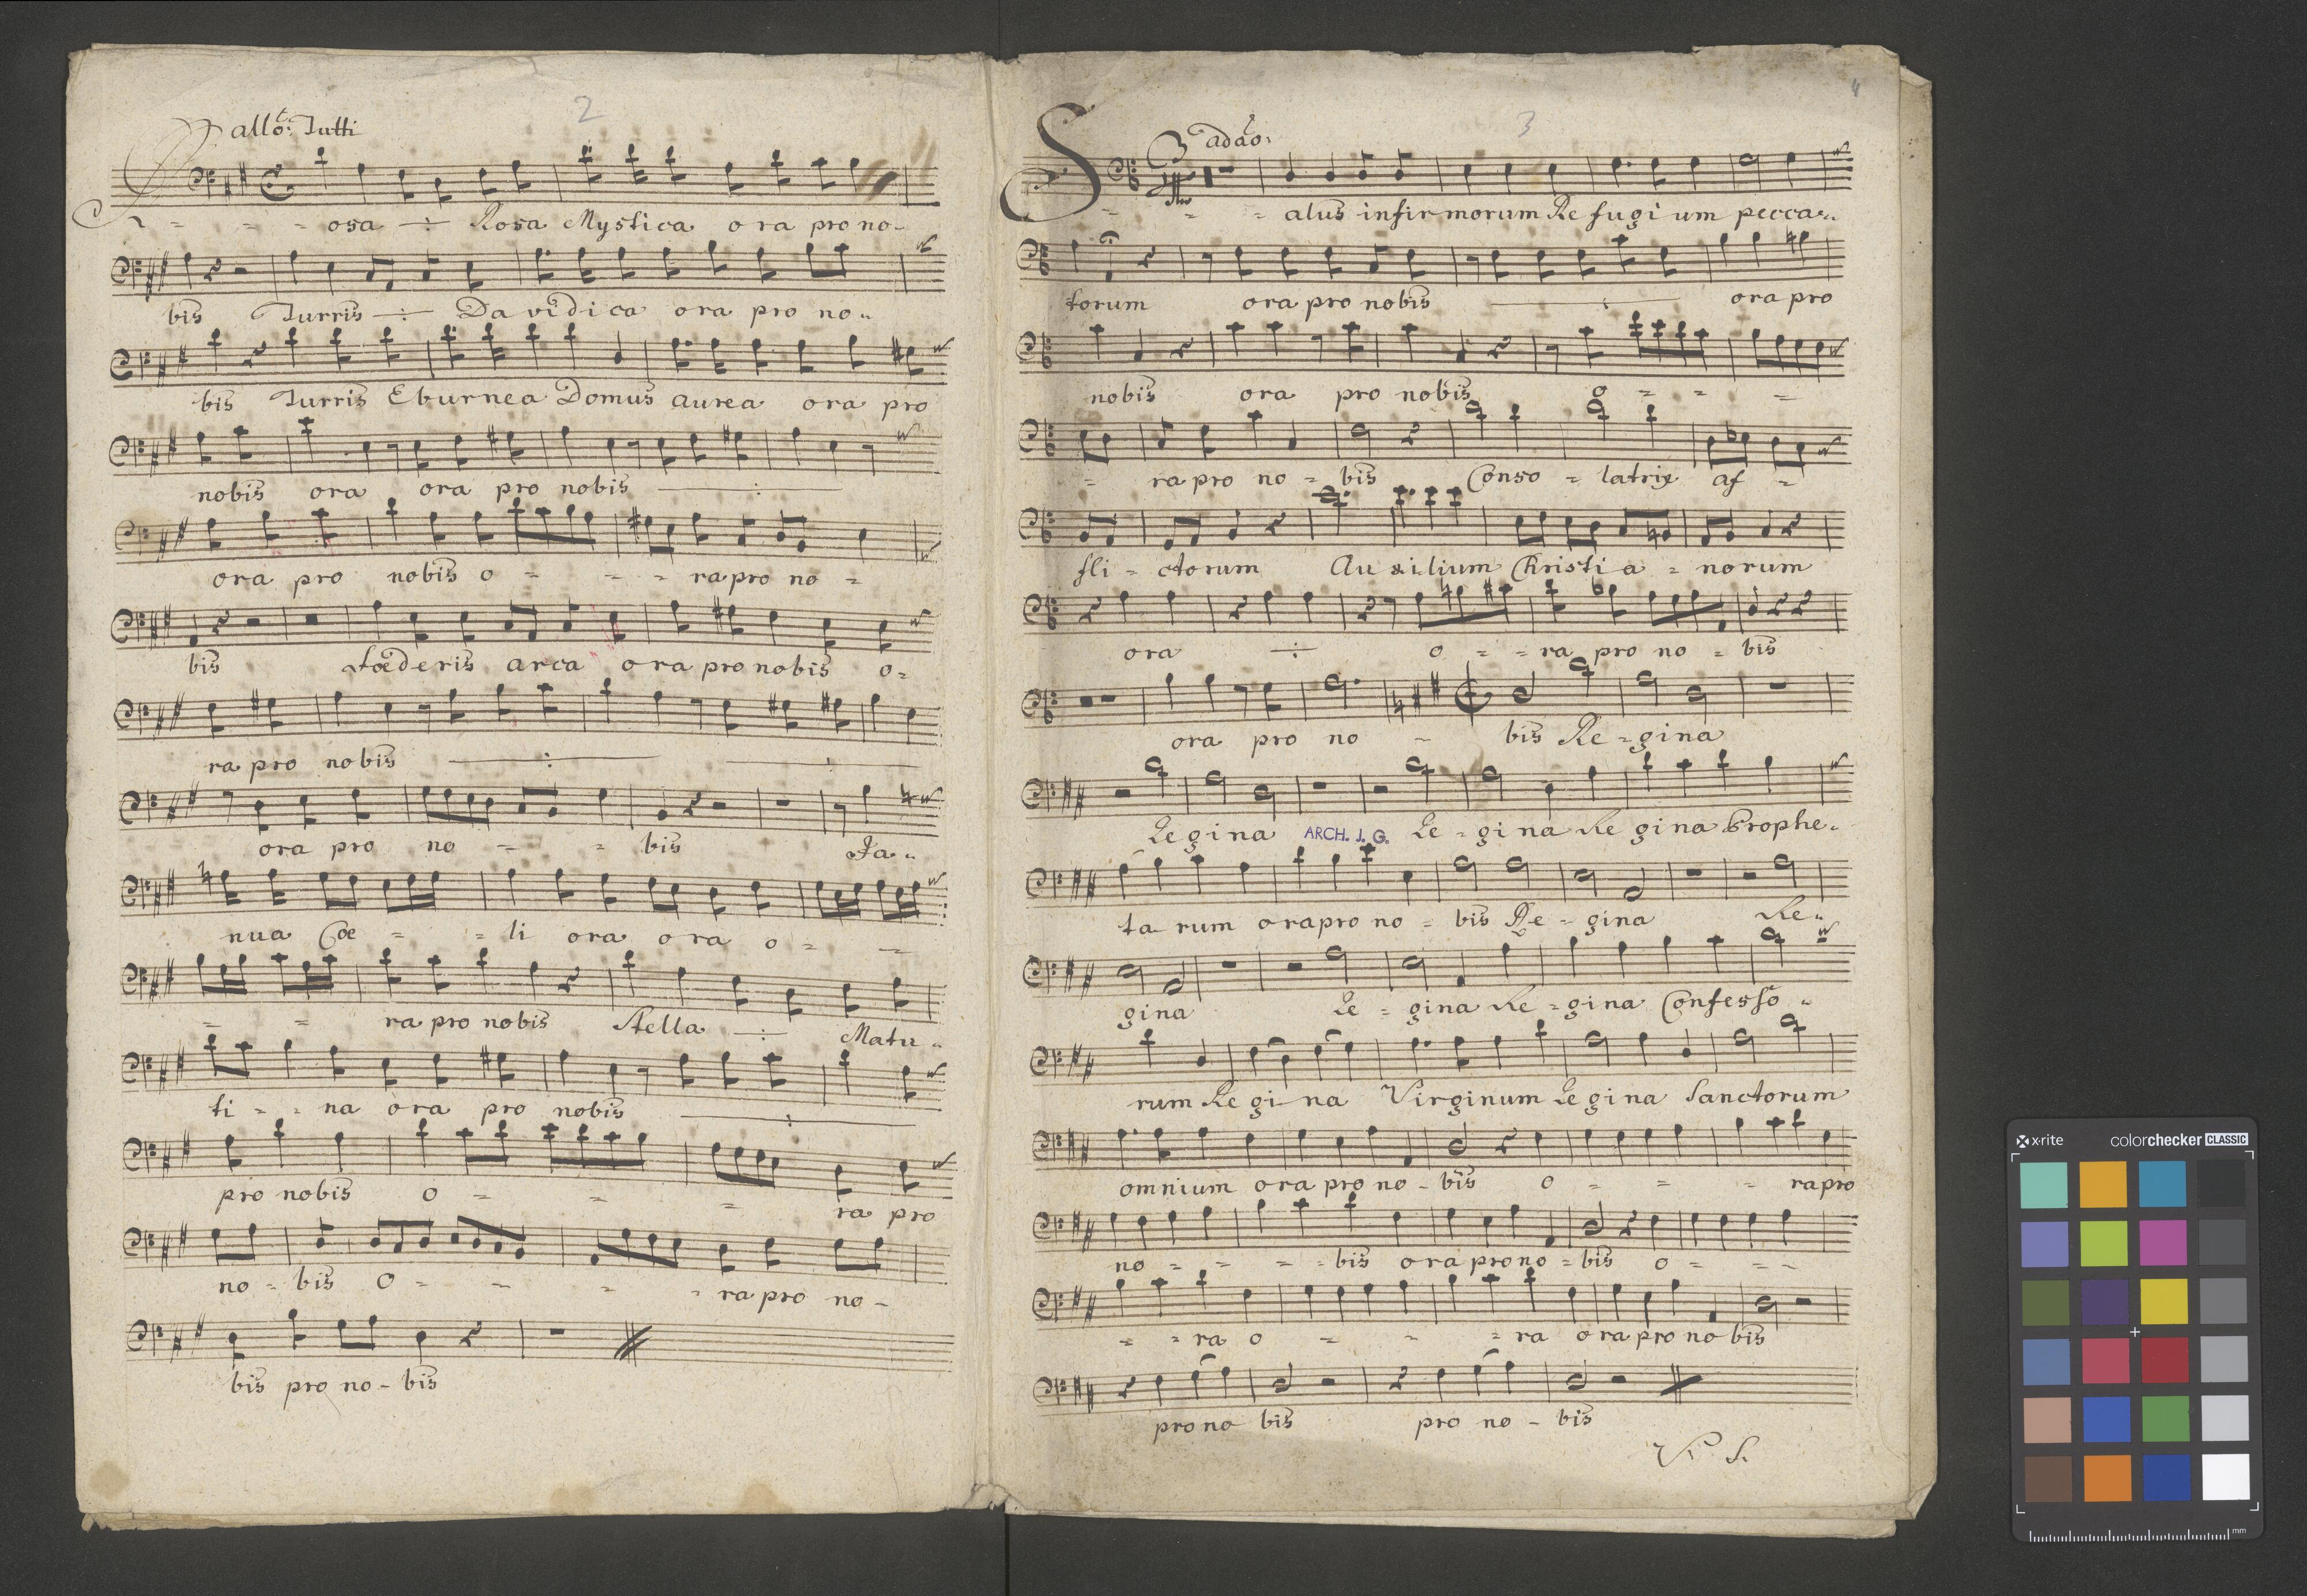 2
allo: Tutti
Rosa Rosa Mystica ora pro no-
bis Turris Davidica ora pro no-
bis Turris Eburnea Domus aurea ora pro
nobis ora ora pro nobis
ora pro nobis o - - - ra pro no -
bis foederis arca ora pro nobis o-
ra pro nobis
ora pro no - - bis Ja-
nua Coe - - li ora ora o - -
- - ra pro nobis Stella Matu-
ti - - na ora pro nobis
pro nobis o - - - ra pro
no - bis o - - - - ra pro no -
bis pro no - bis
4
3
adao:
Salus infirmorum Refugium pecca-
torum ora pro nobis ora pro
nobis ora pro nobis o - - -
- ra pro no - bis Conso - latrix af -
fli - ctorum Auxilium Christia - norum
ora o - - ra pro no - bis
ora pro no - bis Re - gina
Regina ARCH. J. G. Re - gina Regina Prophe-
ta - rum ora pro no - bis Re - gina Re-
gina Re - gina Re - gina Confesso -
rum Regina Virginum Regina Sanctorum
omnium ora pro no - bis o - - - ra pro
no - - - - bis ora pro no - bis o - - -
- - ra o - - - ra ora pro nobis
pro no bis pro no - bis
V. S.
x-rite colorchecker CLASSIC
mm